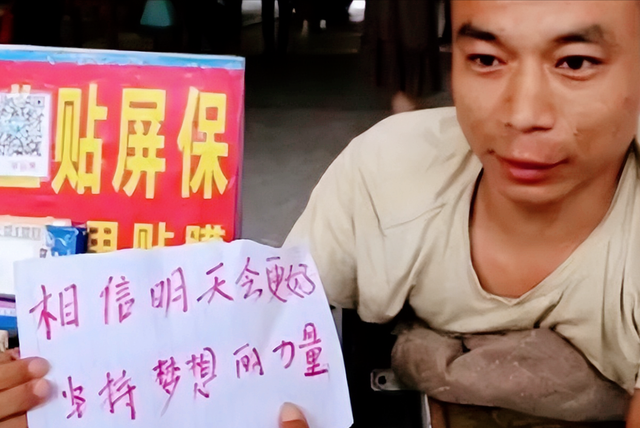 贴屏保
相信明天会更好
坚持梦想的力量